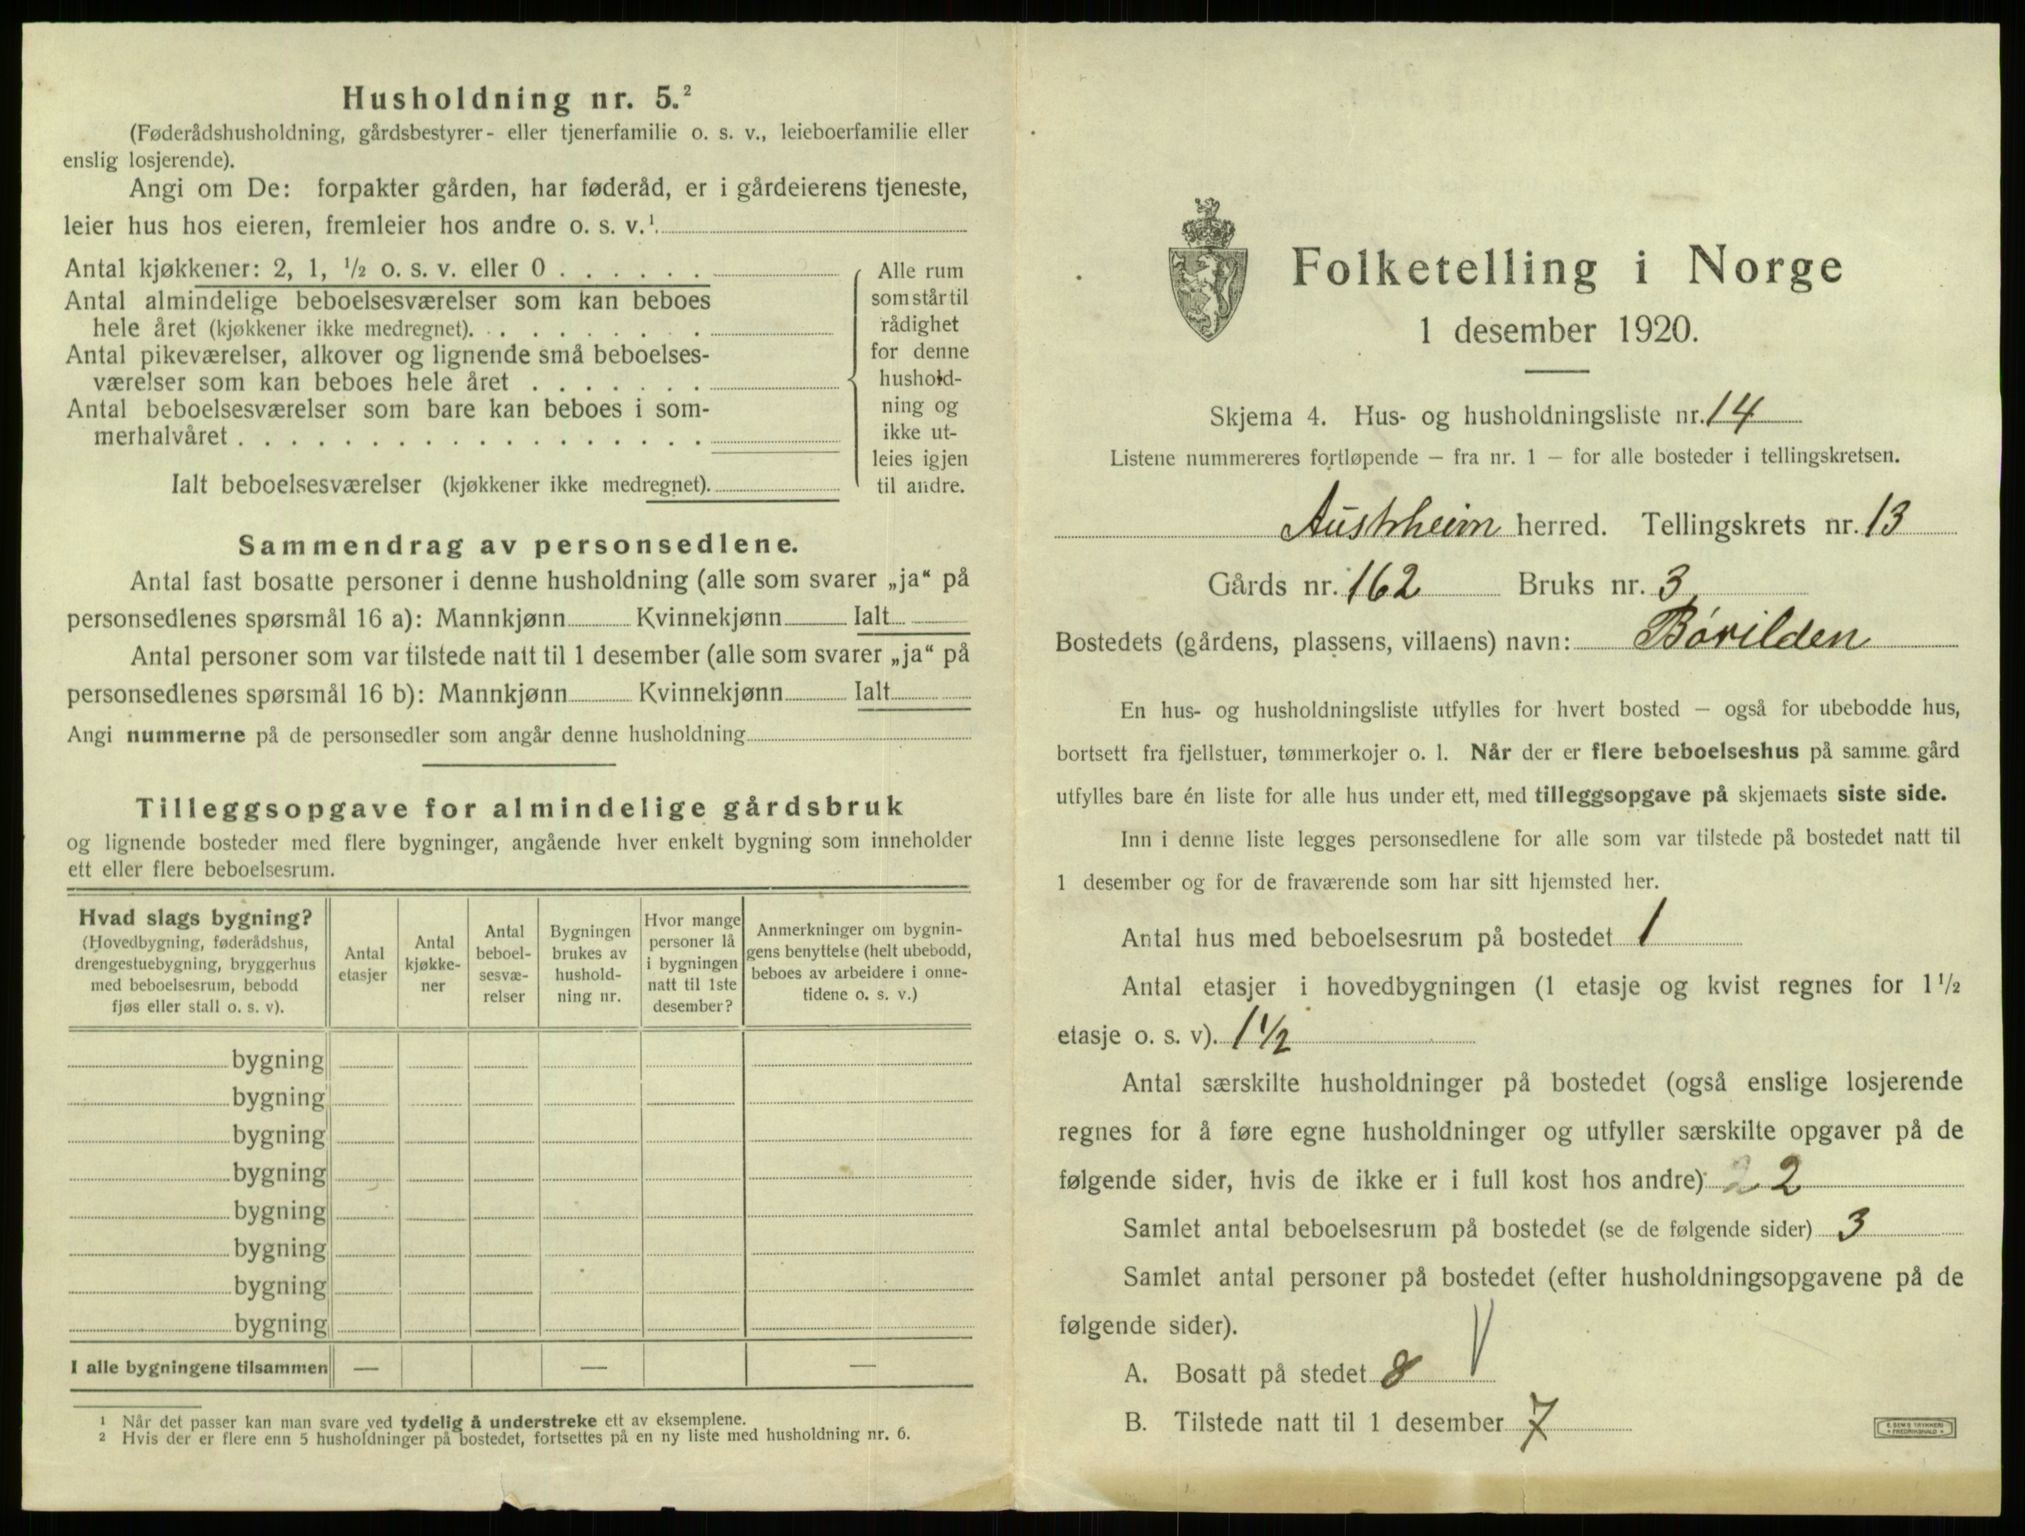 Husholdning nr. 5.²
(Føderådshusholdning, gårdsbestyrer- eller tjenerfamilie o. s. v., leieboerfamilie eller
enslig losjerende).
Angi om De: forpakter gården, har føderåd, er i gårdeierens tjeneste,
leier hus hos eieren, fremleier hos andre o. s. v.¹
Antal kjøkkener: 2, 1, ½ o. s. v. eller 0
Antal almindelige beboelsesværelser som kan beboes
hele året (kjøkkener ikke medregnet).
Antal pikeværelser, alkover og lignende små beboelses-
værelser som kan beboes hele året
Antal beboelsesværelser som bare kan beboes i som-
merhalvåret
Ialt beboelsesværelser (kjøkkener ikke medregnet).
Alle rum
som står til
rådighet
for denne
hushold-
ning og
ikke ut-
leies igjen
til andre.
Sammendrag av personsedlene.
Antal fast bosatte personer i denne husholdning (alle som svarer „ja“ på
personsedlenes spørsmål 16 a): Mannkjønn Kvinnekjønn Ialt
Antal personer som var tilstede natt til 1 desember (alle som svarer „ja“ på
personsedlenes spørsmål 16 b): Mannkjønn Kvinnekjønn Ialt
Angi nummerne på de personsedler som angår denne husholdning
Tilleggsopgave for almindelige gårdsbruk
og lignende bosteder med flere bygninger, angående hver enkelt bygning som inneholder
ett eller flere beboelsesrum.
Hvad slags bygning?
(Hovedbygning, føderådshus,
drengestuebygning, bryggerhus
med beboelsesrum, bebodd
fjøs eller stall o. s. v).
Antal
etasjer
Antal
kjøkke-
ner
Antal
beboel-
sesvæ-
relser
Bygningen
brukes av
hushold-
ning nr.
Hvor mange
personer lå
i bygningen
natt til 1ste
desember?
Anmerkninger om bygnin-
gens benyttelse (helt ubebodd,
beboes av arbeidere i onne-
tidene o. s. v.)
bygning
bygning
bygning
bygning
bygning
bygning
bygning
bygning
I alle bygningene tilsammen — — —
¹ Når det passer kan man svare ved tydelig å understreke ett av eksemplene.
² Hvis der er flere enn 5 husholdninger på bostedet, fortsettes på en ny liste med husholdning nr. 6.
Folketelling i Norge
1 desember 1920.
Skjema 4. Hus- og husholdningsliste nr. 14
Listene nummereres fortløpende – fra nr. 1 – for alle bosteder i tellingskretsen.
Austrheim herred. Tellingskrets nr. 13
Gårds nr. 162 Bruks nr. 3
Bostedets (gårdens, plassens, villaens) navn: Børilden
En hus- og husholdningsliste utfylles for hvert bosted – også for ubebodde hus,
bortsett fra fjellstuer, tømmerkojer o. l. Når der er flere beboelseshus på samme gård
utfylles bare én liste for alle hus under ett, med tilleggsopgave på skjemaets siste side.
Inn i denne liste legges personsedlene for alle som var tilstede på bostedet natt til
1 desember og for de fraværende som har sitt hjemsted her.
Antal hus med beboelsesrum på bostedet 1
Antal etasjer i hovedbygningen (1 etasje og kvist regnes for 1½
etasje o. s. v). 1½
Antal særskilte husholdninger på bostedet (også enslige losjerende
regnes for å føre egne husholdninger og utfyller særskilte opgaver på de
følgende sider, hvis de ikke er i full kost hos andre) 2 2
Samlet antal beboelsesrum på bostedet (se de følgende sider) 3
Samlet antal personer på bostedet (efter husholdningsopgavene på de
følgende sider).
A. Bosatt på stedet 8
B. Tilstede natt til 1 desember 7
E. SEMS TRYKKERI
FREDRIKSHALD